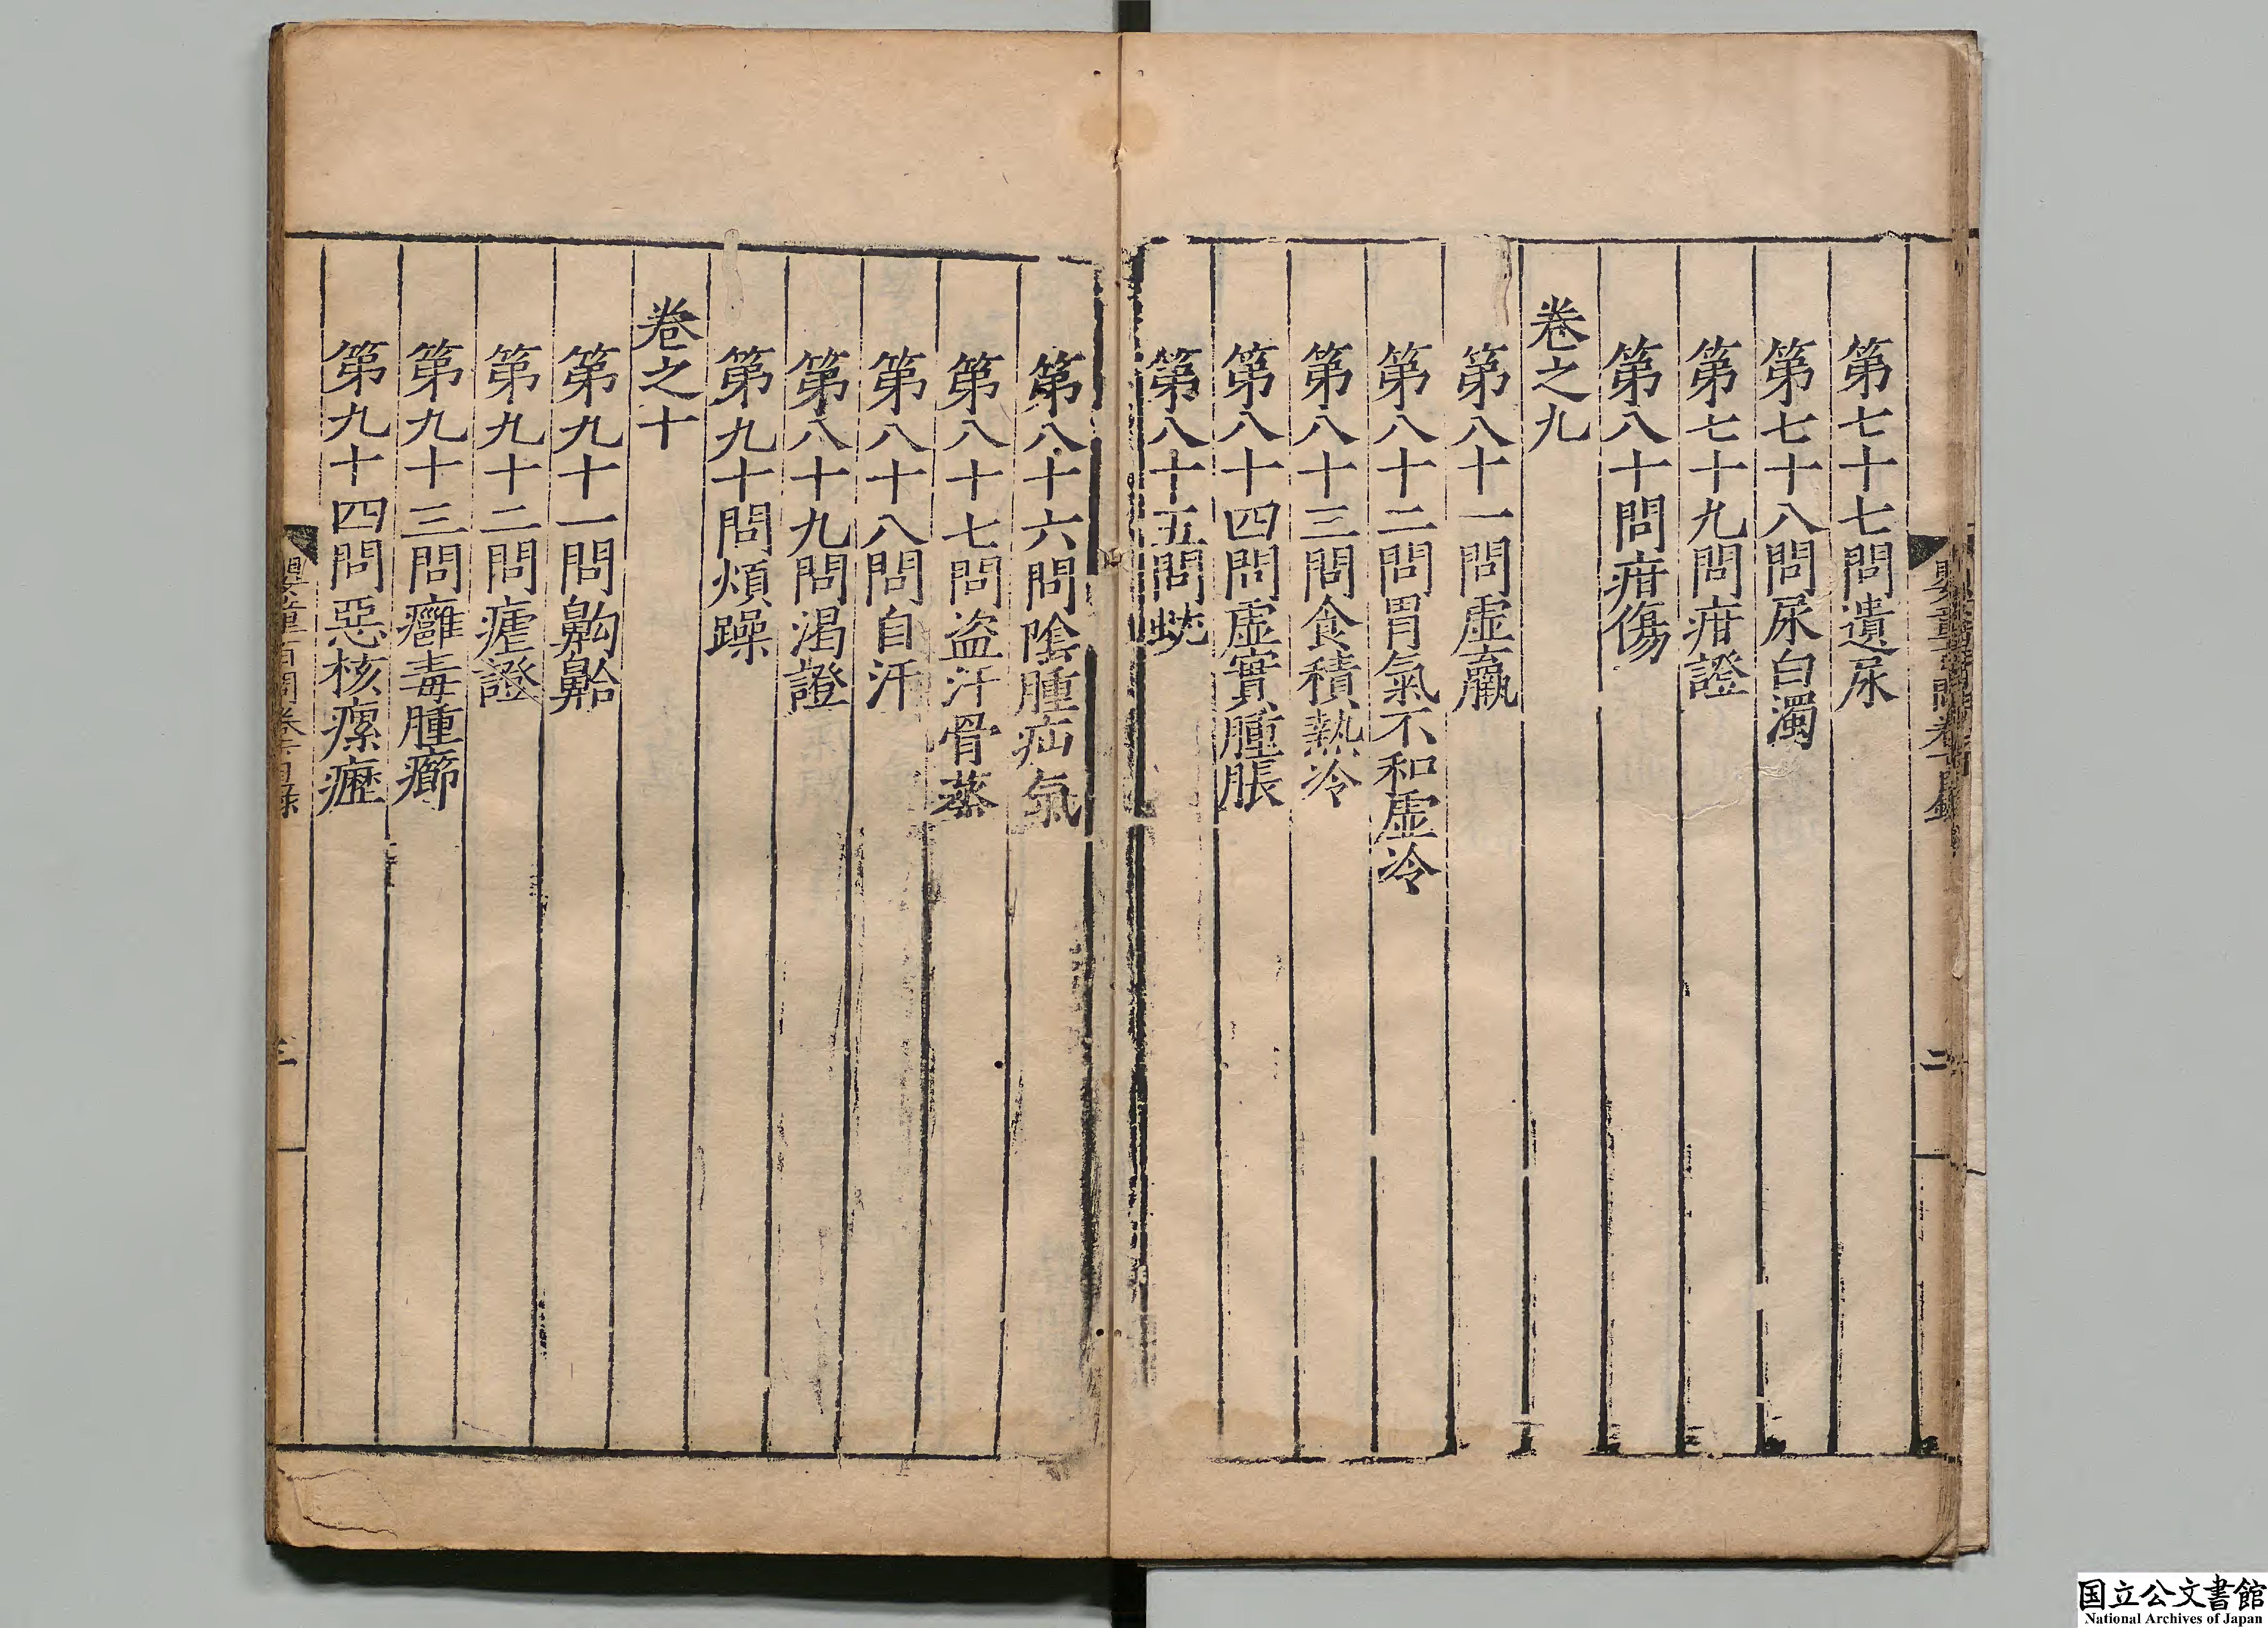 第七十七問遺尿
第七十八問尿白濁
第七十九問疳證
第八十問疳傷
卷之九
第八十一問虛羸
第八十二問胃氣不和虛冷
第八十三問食積熱冷
第八十四問虛實腫脹
第八十五問蚘
第八十六問陰腫疝氣
第八十七問盜汗骨蒸
第八十八問自汗
第八十九問渴證
第九十問煩躁
卷之十
第九十一問齁䶎
第九十二問瘧證
第九十三問癰毒腫癤
第九十四問惡核瘰癧
嬰童百問卷之目錄
三
二
国立公文書館
National Archives of Japan